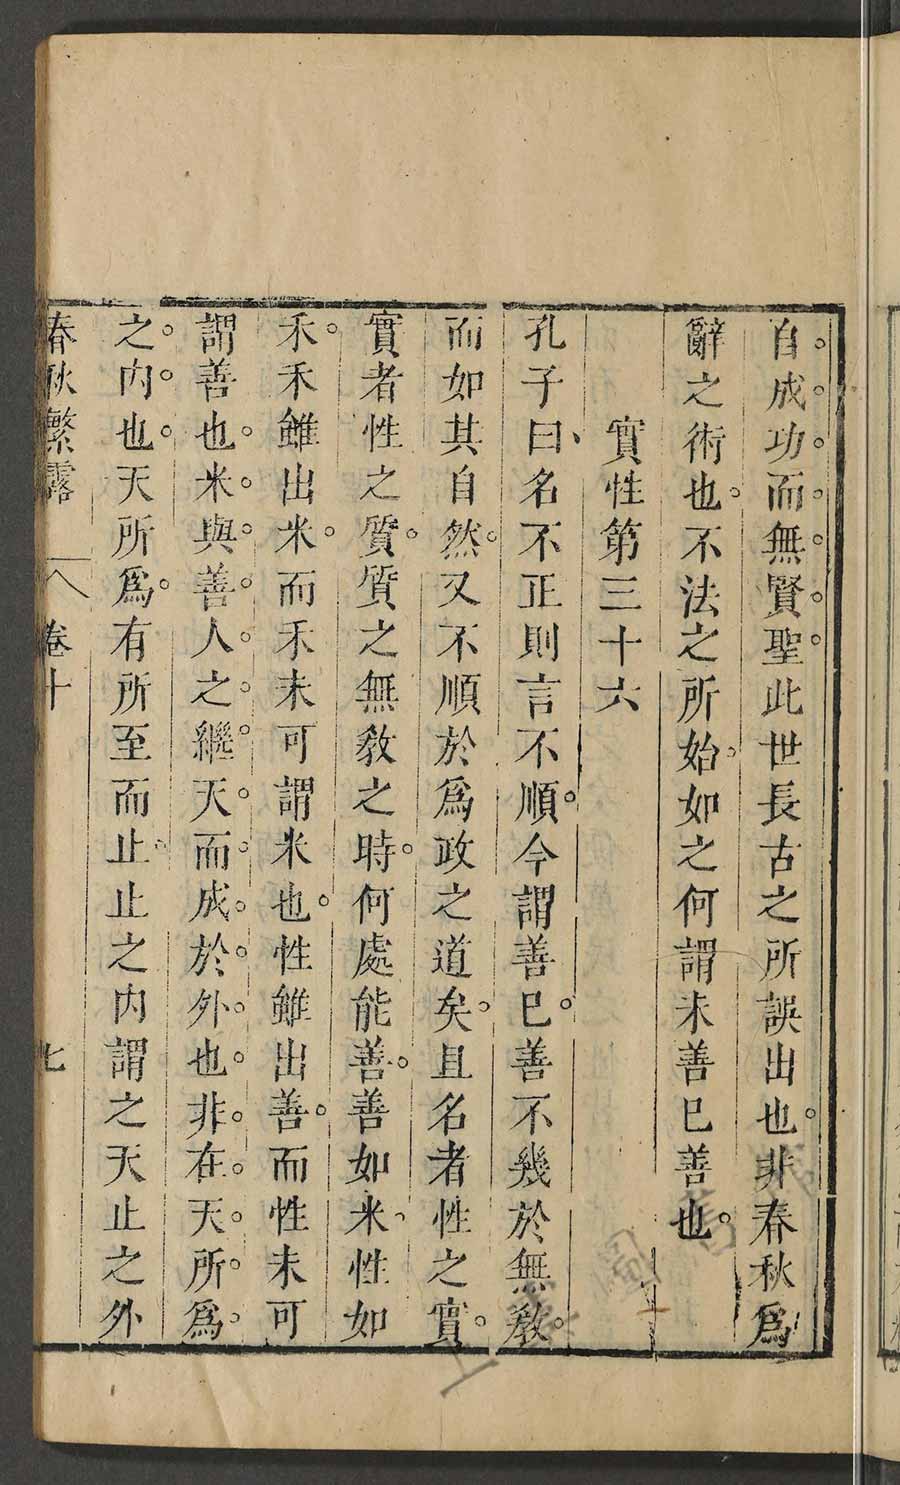 自成功而無賢聖此世長古之所誤出也非春秋爲
辭之術也不法之所始如之何謂未善已善也
實性第三十六
孔子曰名不正則言不順今謂善已善不幾於無敎
而如其自然又不順於爲政之道矣且名者性之實
實者性之質質之無敎之時何處能善善如米性如
禾禾雖出米而禾未可謂米也性雖出善而性未可
謂善也米與善人之繼天而成於外也非在天所爲
之内也天所爲有所至而止止之内謂之天止之外
春秋繁露 卷十 七